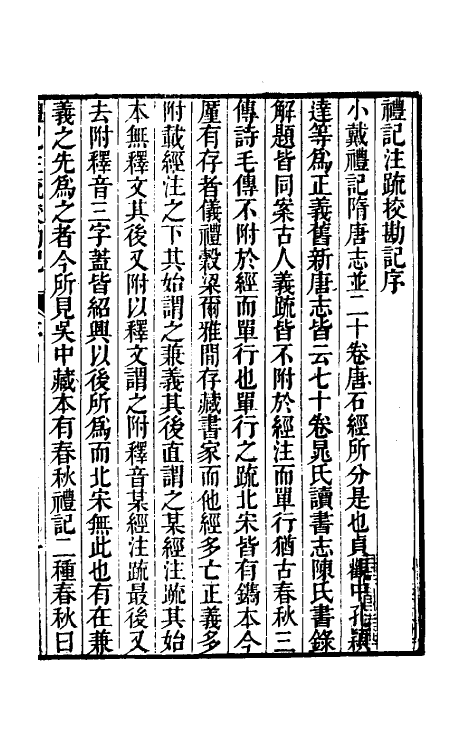 禮記注疏挍勘記序
小戴禮記隋唐志並二十卷唐石經所分是也貞觀中孔穎
達等爲正義舊新唐志皆云七十卷晁氏讀書志陳氏書錄
解題皆同案古人義疏皆不附於經注而單行猶古春秋三
傳詩毛傳不附於經而單行也單行之疏北宋皆有鐫本今
厪有存者儀禮穀梁爾雅間存藏書家而他經多亡正義多
附載經注之下其始謂之兼義其後直謂之某經注疏其始
本無釋文其後又附以釋文謂之附釋音某經注疏最後又
去附釋音三字蓋皆紹興以後所爲而北宋無此也有在兼
義之先爲之者今所見吳中藏本有春秋禮記二種春秋曰